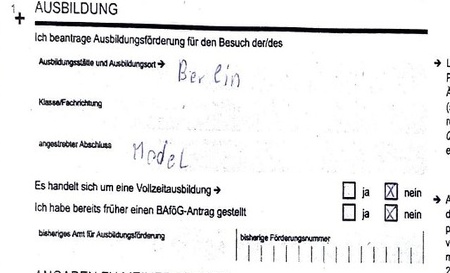 1 AUSBILDUNG
Ich beantrage Ausbildungsförderung für den Besuch der/des
Ausbildungsstätte und Ausbildungsort → Berlin
Klasse/Fachrichtung
angestrebter Abschluss Model
Es handelt sich um eine Vollzeitausbildung → ja nein
Ich habe bereits früher einen BAföG-Antrag gestellt ja nein
bisheriges Amt für Ausbildungsförderung bisherige Förderungsnummer